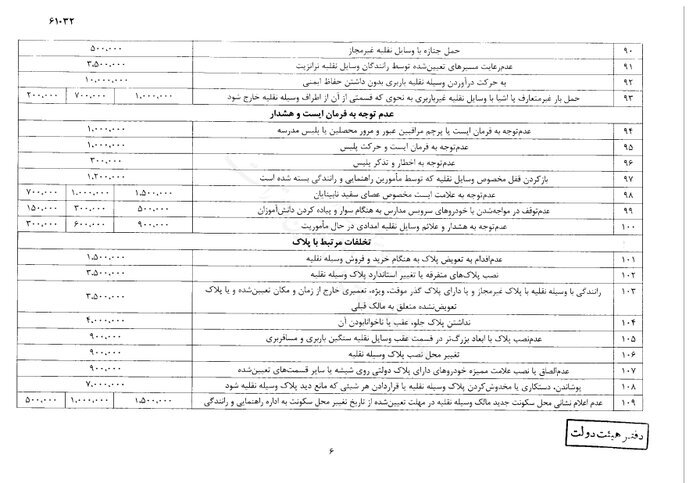 ۶۱۰۳۲
۹۰ حمل جنازه با وسایل نقلیه غیرمجاز ۵۰۰,۰۰۰
۹۱ عدم‌رعایت مسیرهای تعیین‌شده توسط رانندگان وسایل نقلیه ترانزیت ۳,۵۰۰,۰۰۰
۹۲ به حرکت درآوردن وسیله نقلیه باربری بدون داشتن حفاظ ایمنی ۱۰,۰۰۰,۰۰۰
۹۳ حمل بار غیرمتعارف یا اشیا با وسایل نقلیه غیرباربری به نحوی که قسمتی از آن از اطراف وسیله نقلیه خارج شود ۱,۰۰۰,۰۰۰ ۷۰۰,۰۰۰ ۲۰۰,۰۰۰
عدم توجه به فرمان ایست و هشدار
۹۴ عدم‌توجه به فرمان ایست یا پرچم مراقبین عبور و مرور محصلین یا پلیس مدرسه ۱,۰۰۰,۰۰۰
۹۵ عدم‌توجه به فرمان ایست و حرکت پلیس ۱,۰۰۰,۰۰۰
۹۶ عدم‌توجه به اخطار و تذکر پلیس ۳۰۰,۰۰۰
۹۷ بازکردن قفل مخصوص وسایل نقلیه که توسط مأمورین راهنمایی و رانندگی بسته شده است ۱,۲۰۰,۰۰۰
۹۸ عدم‌توجه به علامت ایست مخصوص عصای سفید نابینایان ۱,۵۰۰,۰۰۰ ۱,۰۰۰,۰۰۰ ۷۰۰,۰۰۰
۹۹ عدم‌توقف در مواجه‌شدن با خودروهای سرویس مدارس به هنگام سوار و پیاده کردن دانش‌آموزان ۵۰۰,۰۰۰ ۳۰۰,۰۰۰ ۱۵۰,۰۰۰
۱۰۰ عدم‌توجه به هشدار و علائم وسایل نقلیه امدادی در حال مأموریت ۹۰۰,۰۰۰ ۶۰۰,۰۰۰ ۳۰۰,۰۰۰
تخلفات مرتبط با پلاک
۱۰۱ عدم‌اقدام به تعویض پلاک به هنگام خرید و فروش وسیله نقلیه ۱,۵۰۰,۰۰۰
۱۰۲ نصب پلاک‌های متفرقه یا تغییر استاندارد پلاک وسیله نقلیه ۳,۵۰۰,۰۰۰
۱۰۳ رانندگی با وسیله نقلیه با پلاک غیرمجاز و یا دارای پلاک گذر موقت، ویژه، تعمیری خارج از زمان و مکان تعیین‌شده و یا پلاک
تعویض‌نشده متعلق به مالک قبلی ۳,۵۰۰,۰۰۰
۱۰۴ نداشتن پلاک جلو، عقب یا ناخوانابودن آن ۴,۰۰۰,۰۰۰
۱۰۵ عدم‌نصب پلاک با ابعاد بزرگ‌تر در قسمت عقب وسایل نقلیه سنگین باربری و مسافربری ۹۰۰,۰۰۰
۱۰۶ تغییر محل نصب پلاک وسیله نقلیه ۹۰۰,۰۰۰
۱۰۷ عدم‌الصاق یا نصب علامت ممیزه خودروهای دارای پلاک دولتی روی شیشه یا سایر قسمت‌های تعیین‌شده ۹۰۰,۰۰۰
۱۰۸ پوشاندن، دستکاری یا مخدوش‌کردن پلاک وسیله نقلیه یا قراردادن هر شیئی که مانع دید پلاک وسیله نقلیه شود ۷,۰۰۰,۰۰۰
۱۰۹ عدم اعلام نشانی محل سکونت جدید مالک وسیله نقلیه در مهلت تعیین‌شده از تاریخ تغییر محل سکونت به اداره راهنمایی و رانندگی ۱,۵۰۰,۰۰۰ ۱,۰۰۰,۰۰۰ ۵۰۰,۰۰۰
دفتر هیئت دولت
۶